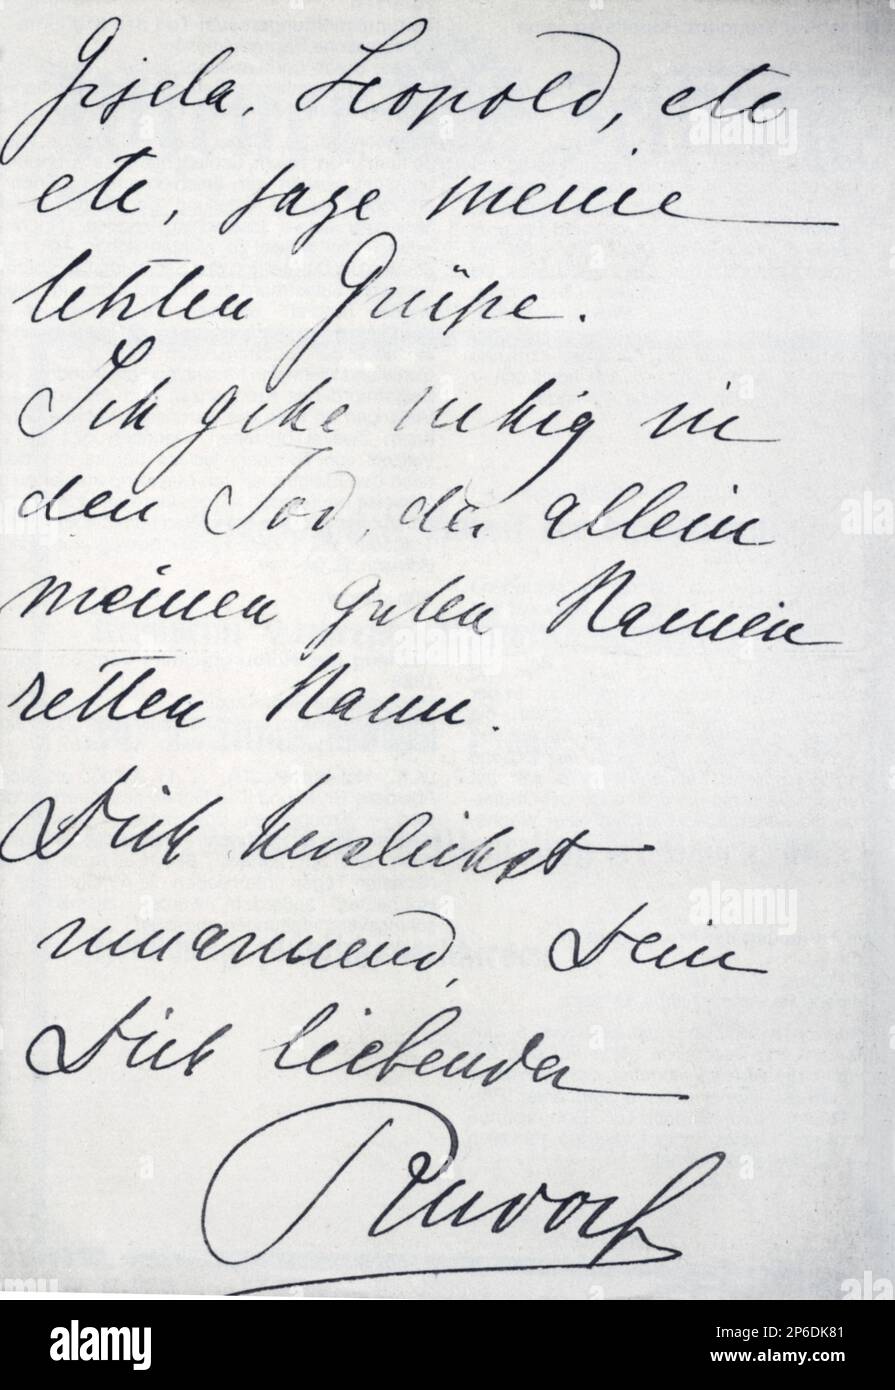 Gisela, Leopold, etc
etc, sage meine
letzten Grüße.
Ich gehe ruhig in
den Tod, der allein
meinen guten Namen
retten kann.
Dich herzlichst
umarmend, Dein
Dich liebender
Rudolf
alamy
Image ID: 2P6DK81
www.alamy.com